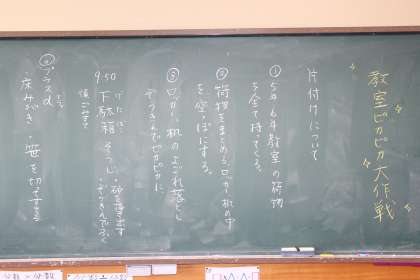 教室ピカピカ大作戦
片付けについて
① 5年6年教室の荷物
を全て持ってくる。
② 荷物をまとめる。ロッカー、机の中
を空っぽにする。
③ ロッカー、机のよごれ落とし
ぞうきんでピカピカに
9:50 下駄箱そうじ
げたばこ
・砂を掃き出す
・ぞうきんでふく
④ プラスα
・床みがき